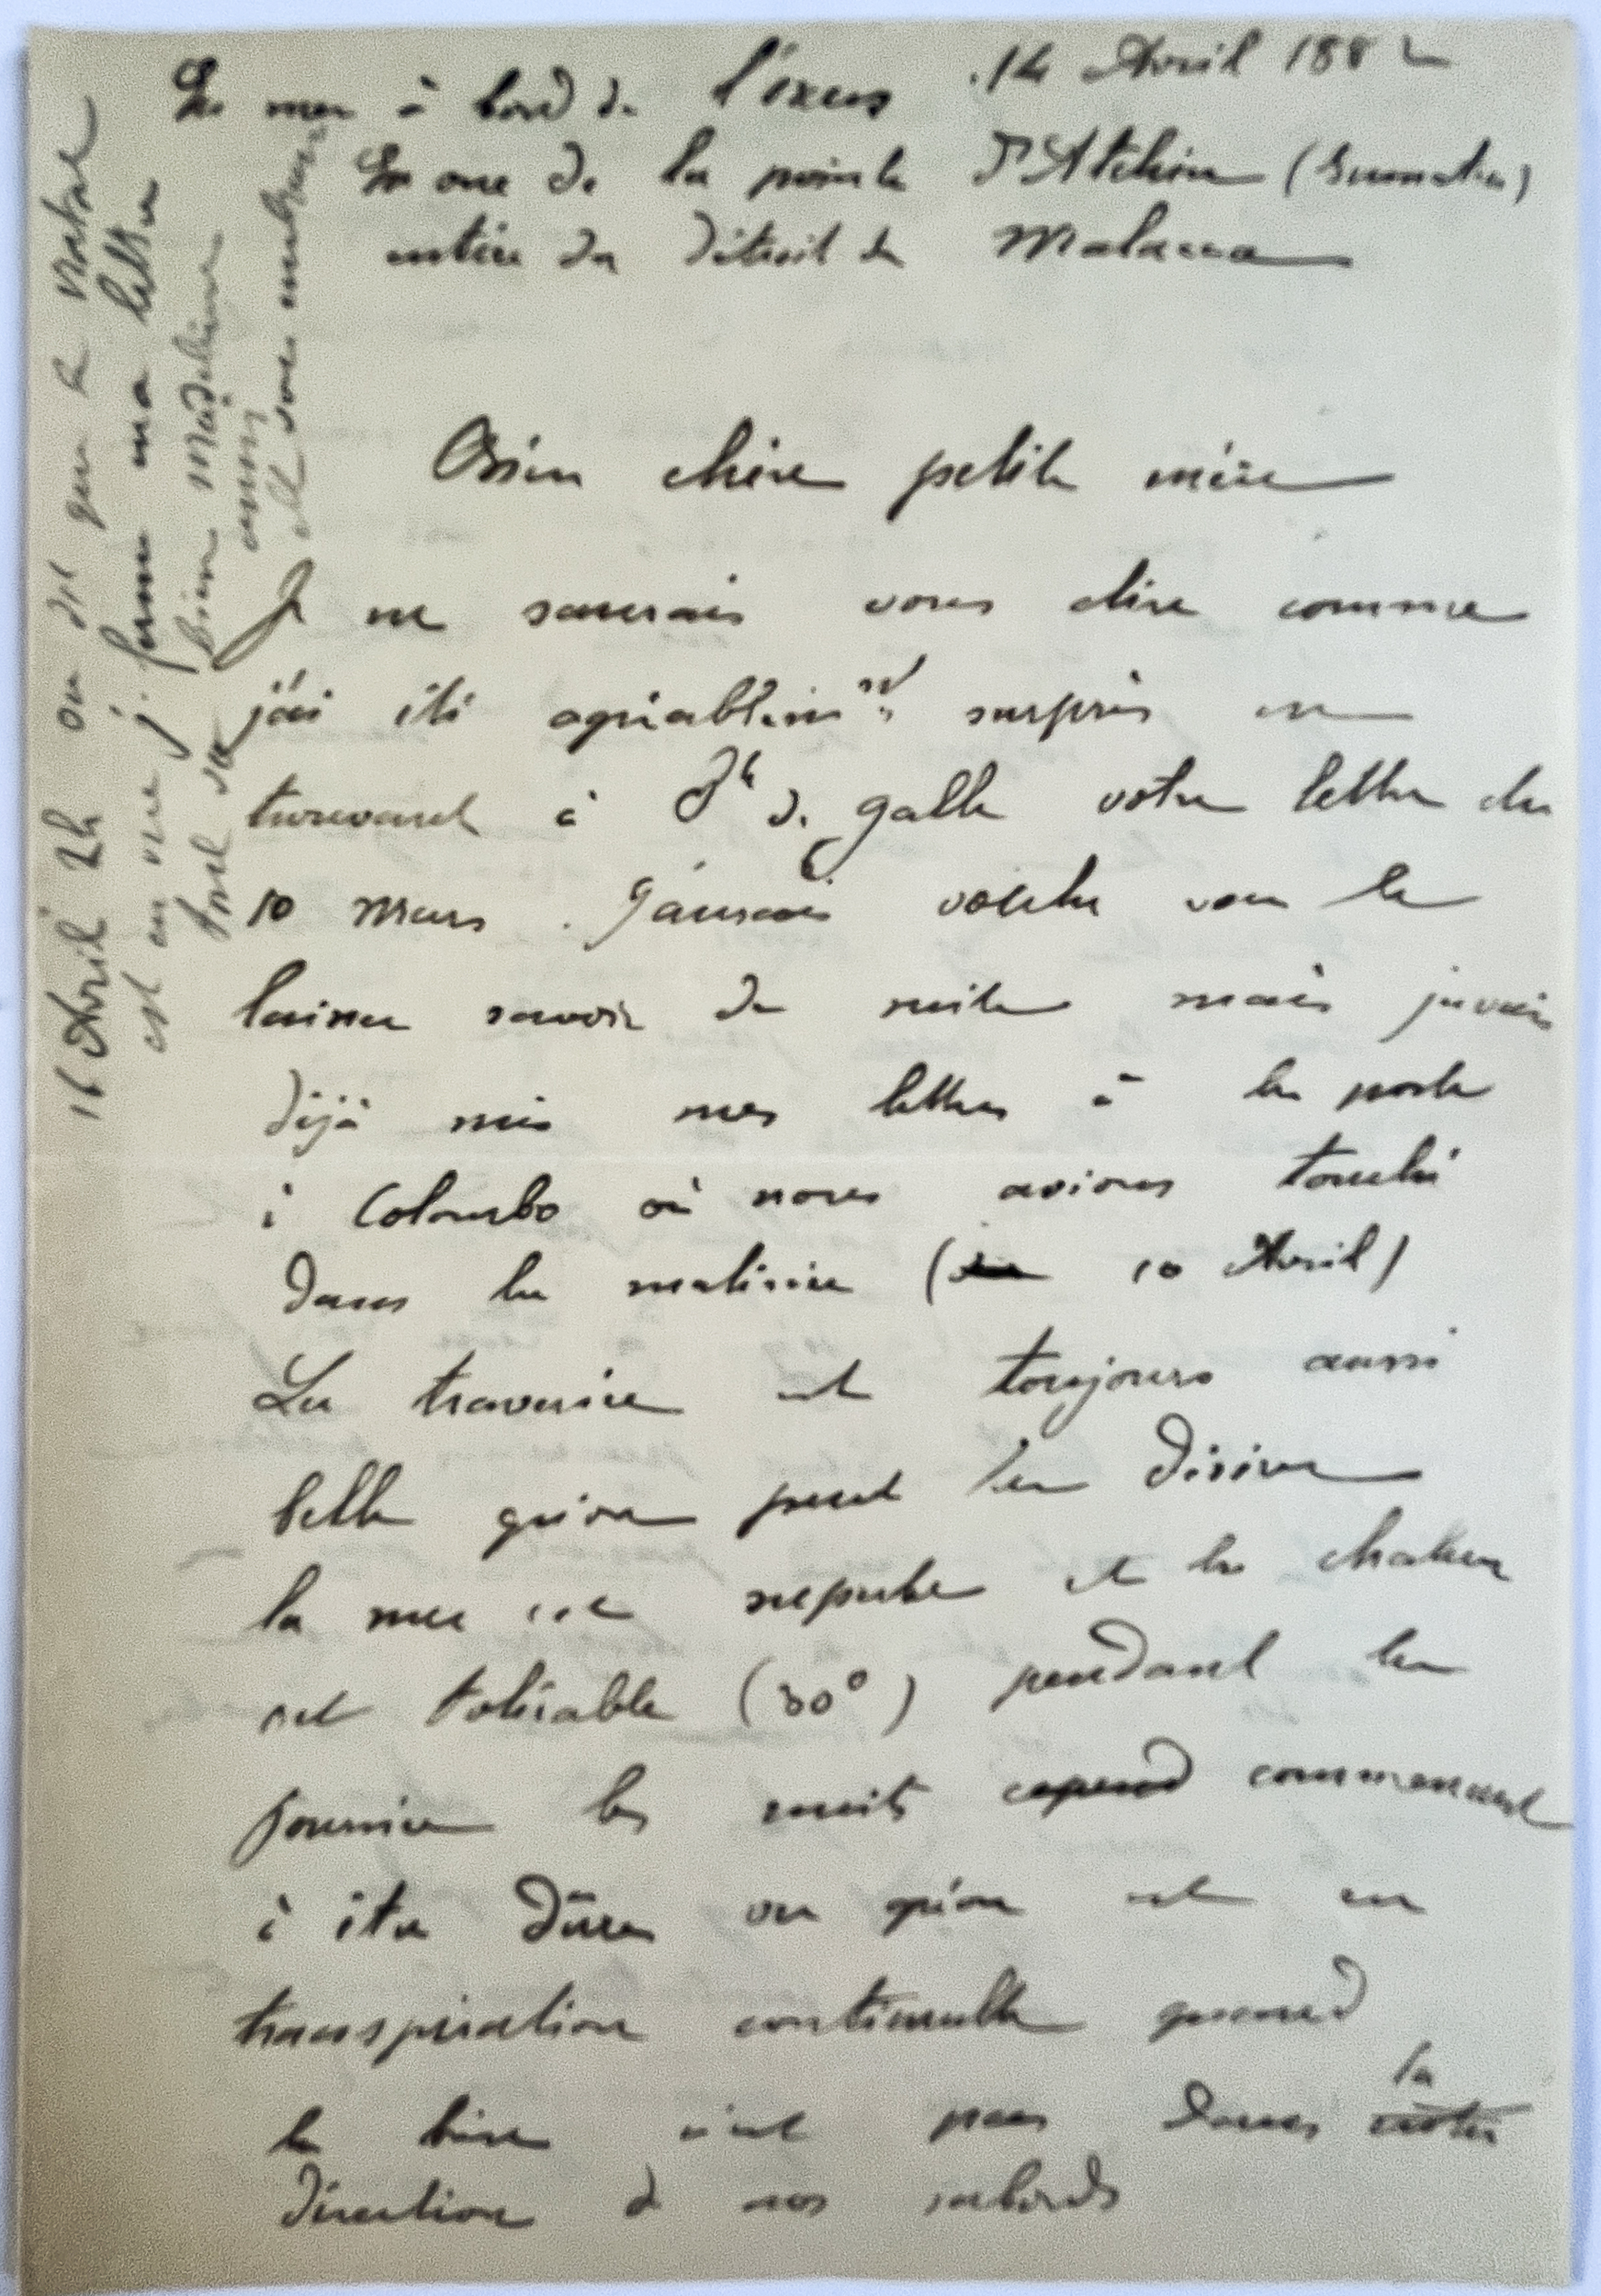 En mer à bord de l'oxus 14 Avril 1882
En vue de la pointe d'Atchin (Sumatra)
entrée du détroit de Malacca
Bien chère petite mère
Je ne saurais vous dire comme
j'ai été agréablemt surpris en
trouvant à Pte de galle votre lettre du
10 mars. J'aurais voulu vous le
laisser savoir de suite mais j'avais
déjà mis mes lettres à la poste
à Colombo où nous avions touché
dans la matinée ( 10 Avril)
La traversée est toujours aussi
belle qu'on peut le désirer
la mer est superbe et la chaleur
est tolérable (30°) pendant la
journée les nuits cepend commencent
à être dures on qu'on est en
transpiration continuelle quand
la brise n'est pas dans la notre
direction de nos sabords
16 Avril 2h on dit que le
est en vue je ferme ma lettre
bien Madeleine